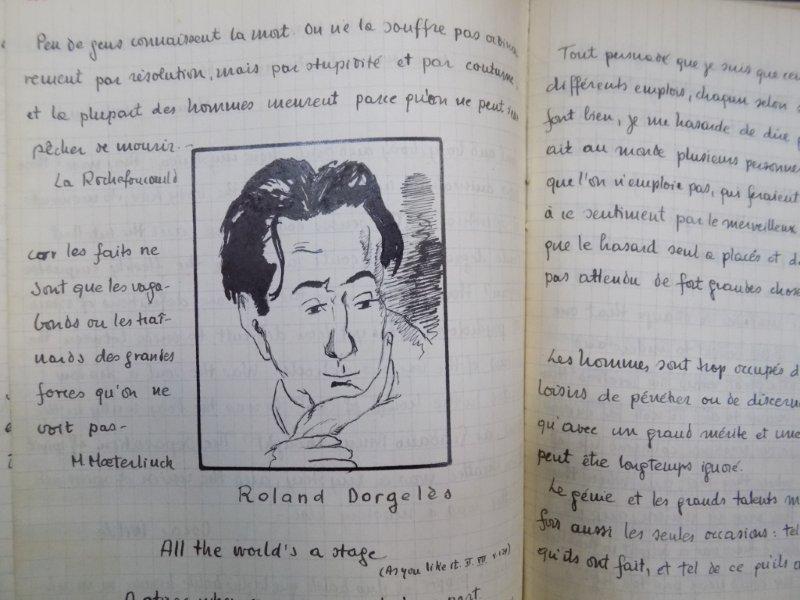 Peu de gens connaissent la mort. On ne la souffre pas ordinai
rement par résolution, mais par stupidité et par coutume,
et la plupart des hommes meurent parce qu'on ne peut s'em
pêcher de mourir.-
La Rochefoucauld
car les faits ne
sont que les vaga-
bonds ou les traî-
nards des grandes
forces qu'on ne
voit pas-
M. Mæterlinck
Roland Dorgelès
All the world's a stage
(As you like it. II. VII
Tout persuadé que je suis que ceux
différents emplois, chacun selon s
font bien, je me hasarde de dire
ait au monde plusieurs personnes
que l'on n'emploie pas, qui feraient
à ce sentiment par le merveilleux
que le hasard seul a placés et d
pas attendu de fort grandes chose
Les hommes sont trop occupés d
loisirs de pénétrer ou de discerner
qu'avec un grand mérite et une
peut être longtemps ignoré.
Le génie et les grands talents m
fois aussi les seules occasions: tel
qu'ils ont fait, et tel de ce qu'ils a